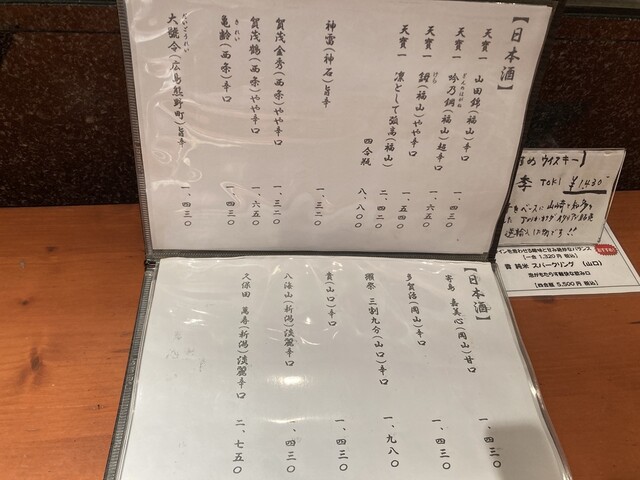 【日本酒】
天寶一 山田錦(福山)辛口 一、四三〇
天寶一 吟乃鋼(福山)超辛口 一、六五〇
天寶一 (福山)やや辛口 一、五四〇
天寶一 凛として強高(福山) 二、四二〇
四合瓶 八、八〇〇
神雷(神石)旨辛 一、三二〇
賀茂金秀(西条)やや辛口 一、三二〇
賀茂鶴(西条)やや辛口 一、六五〇
きれい
亀齢(西条)辛口 一、四三〇
だいごうれい
大號令(広島熊野町)旨辛 一、四三〇
【日本酒】
嘉美心(岡山)甘口 一、四三〇
多賀治(岡山)辛口 一、四三〇
獺祭 三割九分(山口)辛口 一、九八〇
貴(山口)辛口 一、四三〇
八海山(新潟)淡麗辛口 一、四三〇
久保田 萬寿(新潟)淡麗辛口 二、七五〇
すめ ウイスキー】
季 TOKI ¥1,430
【一合 1,320円 税込】
純米 スパークリング (山口)
【四合瓶 5,500円 税込】